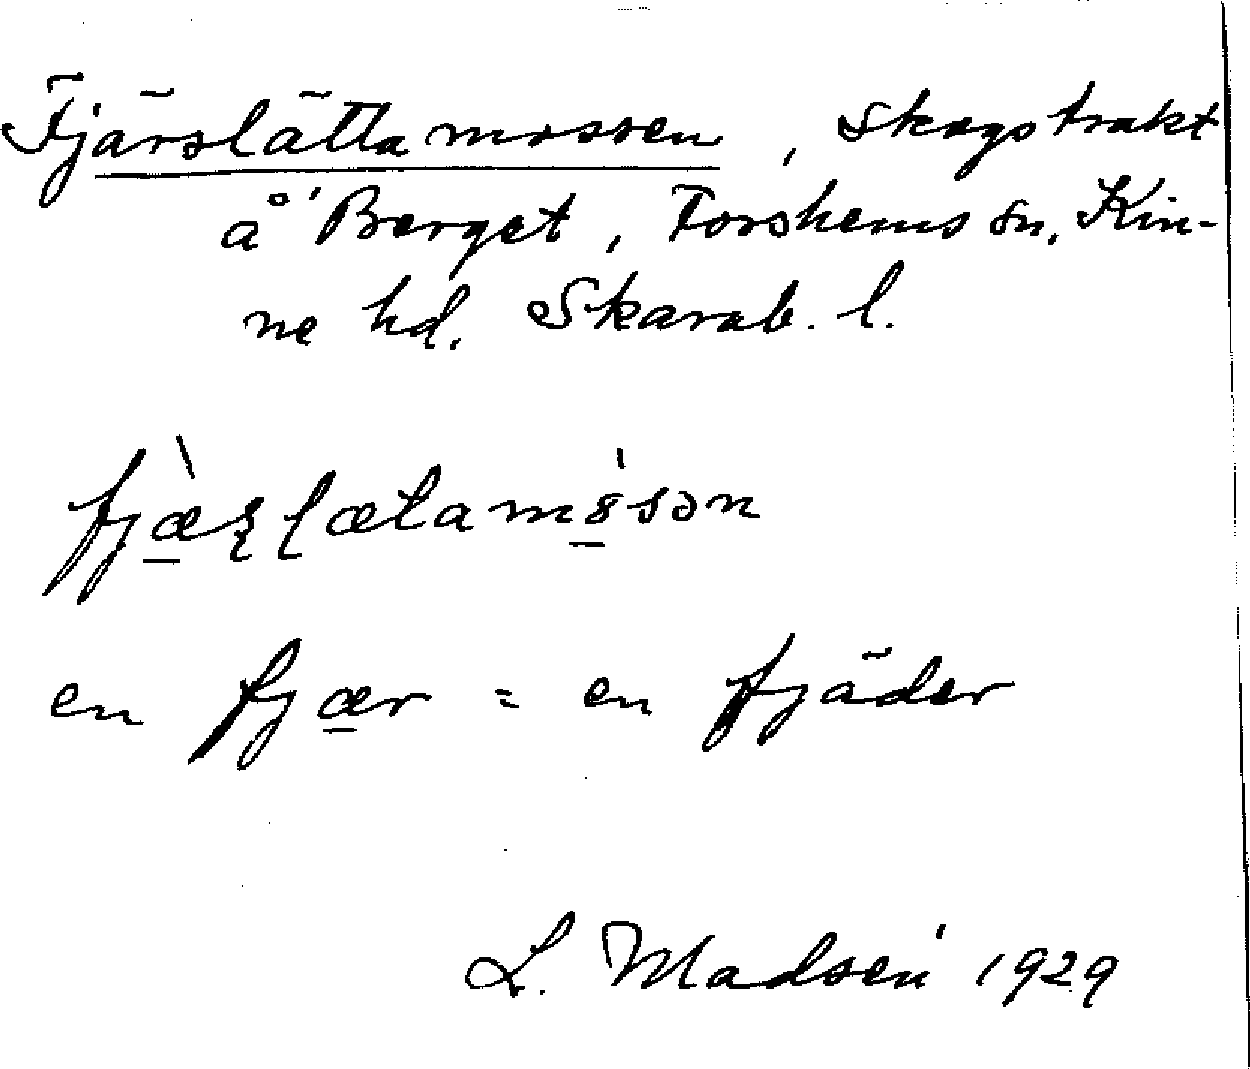 Fjärslätta mossen, Skogstrakt
å Berget, Forshems sn, Kin-
ne hd. Skarab. l.
en fjær = en fjäder
L. Madsén 1929